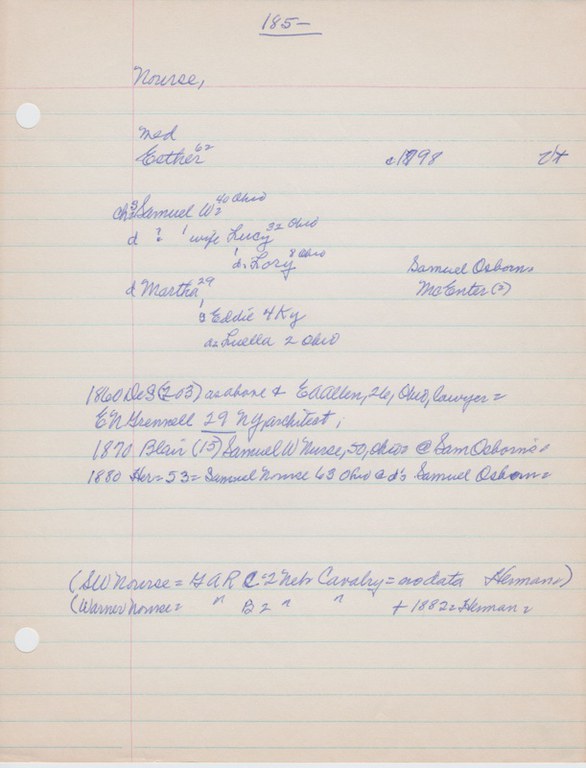 185-
Nourse,
med
Esther 62 c1798 Vt
ch: s Samuel W= 40 Ohio
d ? ' wife Lucy 32 Ohio
'd. Lory 8 Ohio
d Martha 29 Samuel Osborn=
McEnter (?)
s Eddie 4 Ky
d= Luella 2 Ohio
1860 DeS (203) as above & EA Allen, 26, Ohio, lawyer=
EN Grennell 29 NY architect;
1870 Blair (15) Samuel W Nurse, 50, Ohio= @ Sam Osborn's=
1880 Her= 53= Samuel Nourse 63 Ohio @ d's Samuel Osborn=
(SW Nourse = GAR C=2 Nebr Cavalry = no data Herman=)
(Warner Nourse= " B= " " + 1882= Herman=